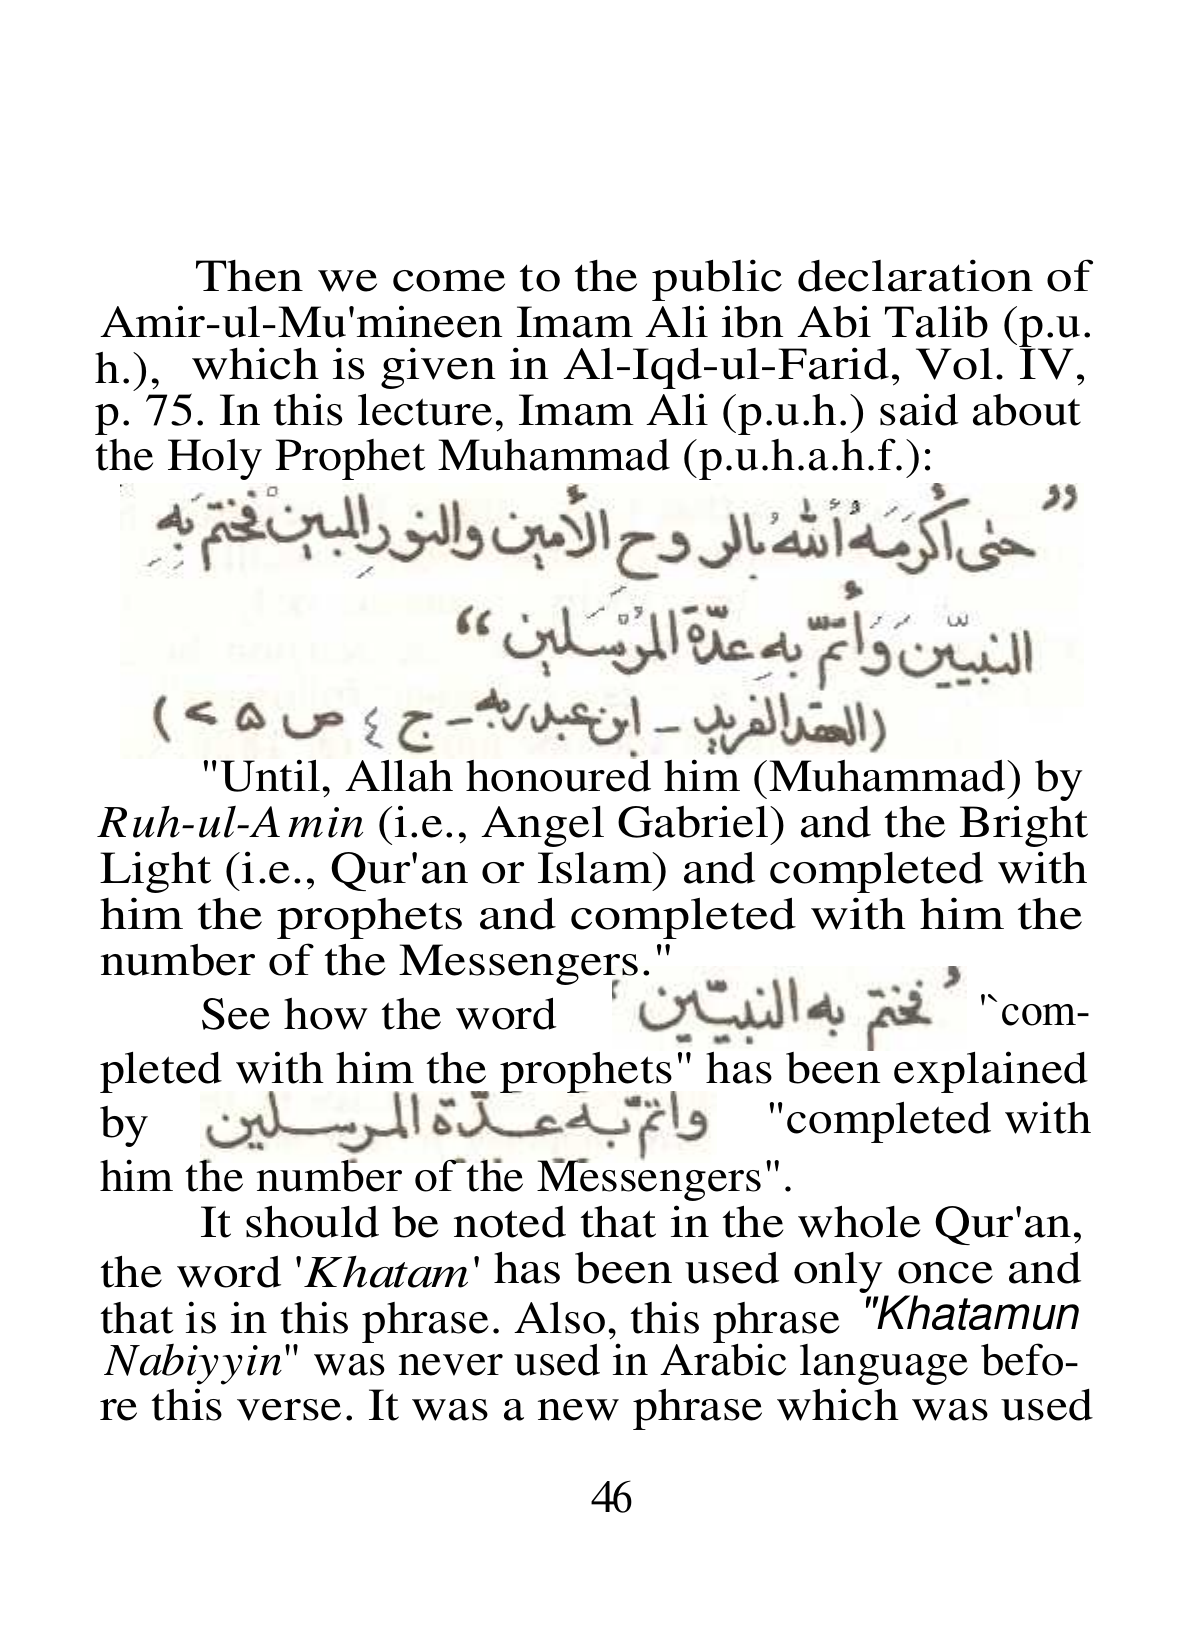 Then we come to the public declaration of
Amir-ul-Mu'mineen Imam Ali ibn Abi Talib (p.u.
h.), which is given in Al-Iqd-ul-Farid, Vol. IV,
p. 75. In this lecture, Imam Ali (p.u.h.) said about
the Holy Prophet Muhammad (p.u.h.a.h.f.):
”حتى أكرَمَهُ اُللهُ بالروح الأمين والنورِ المبين فختمَ بِهِ
النبيّين وَأتمّ بهِ عدّةَ المُرْسَلين“
(العقد الفريد ـ ابن عبد ربه ـ ج ٤ ص ۵ >)
"Until, Allah honoured him (Muhammad) by
Ruh-ul-Amin (i.e., Angel Gabriel) and the Bright
Light (i.e., Qur'an or Islam) and completed with
him the prophets and completed with him the
number of the Messengers."
See how the word ’فختم به النبيّين‘ "`com-
pleted with him the prophets" has been explained
by واتمّ به عدّة المرسلين "completed with
him the number of the Messengers".
It should be noted that in the whole Qur'an,
the word 'Khatam' has been used only once and
that is in this phrase. Also, this phrase "Khatamun
Nabiyyin" was never used in Arabic language befo-
re this verse. It was a new phrase which was used
46